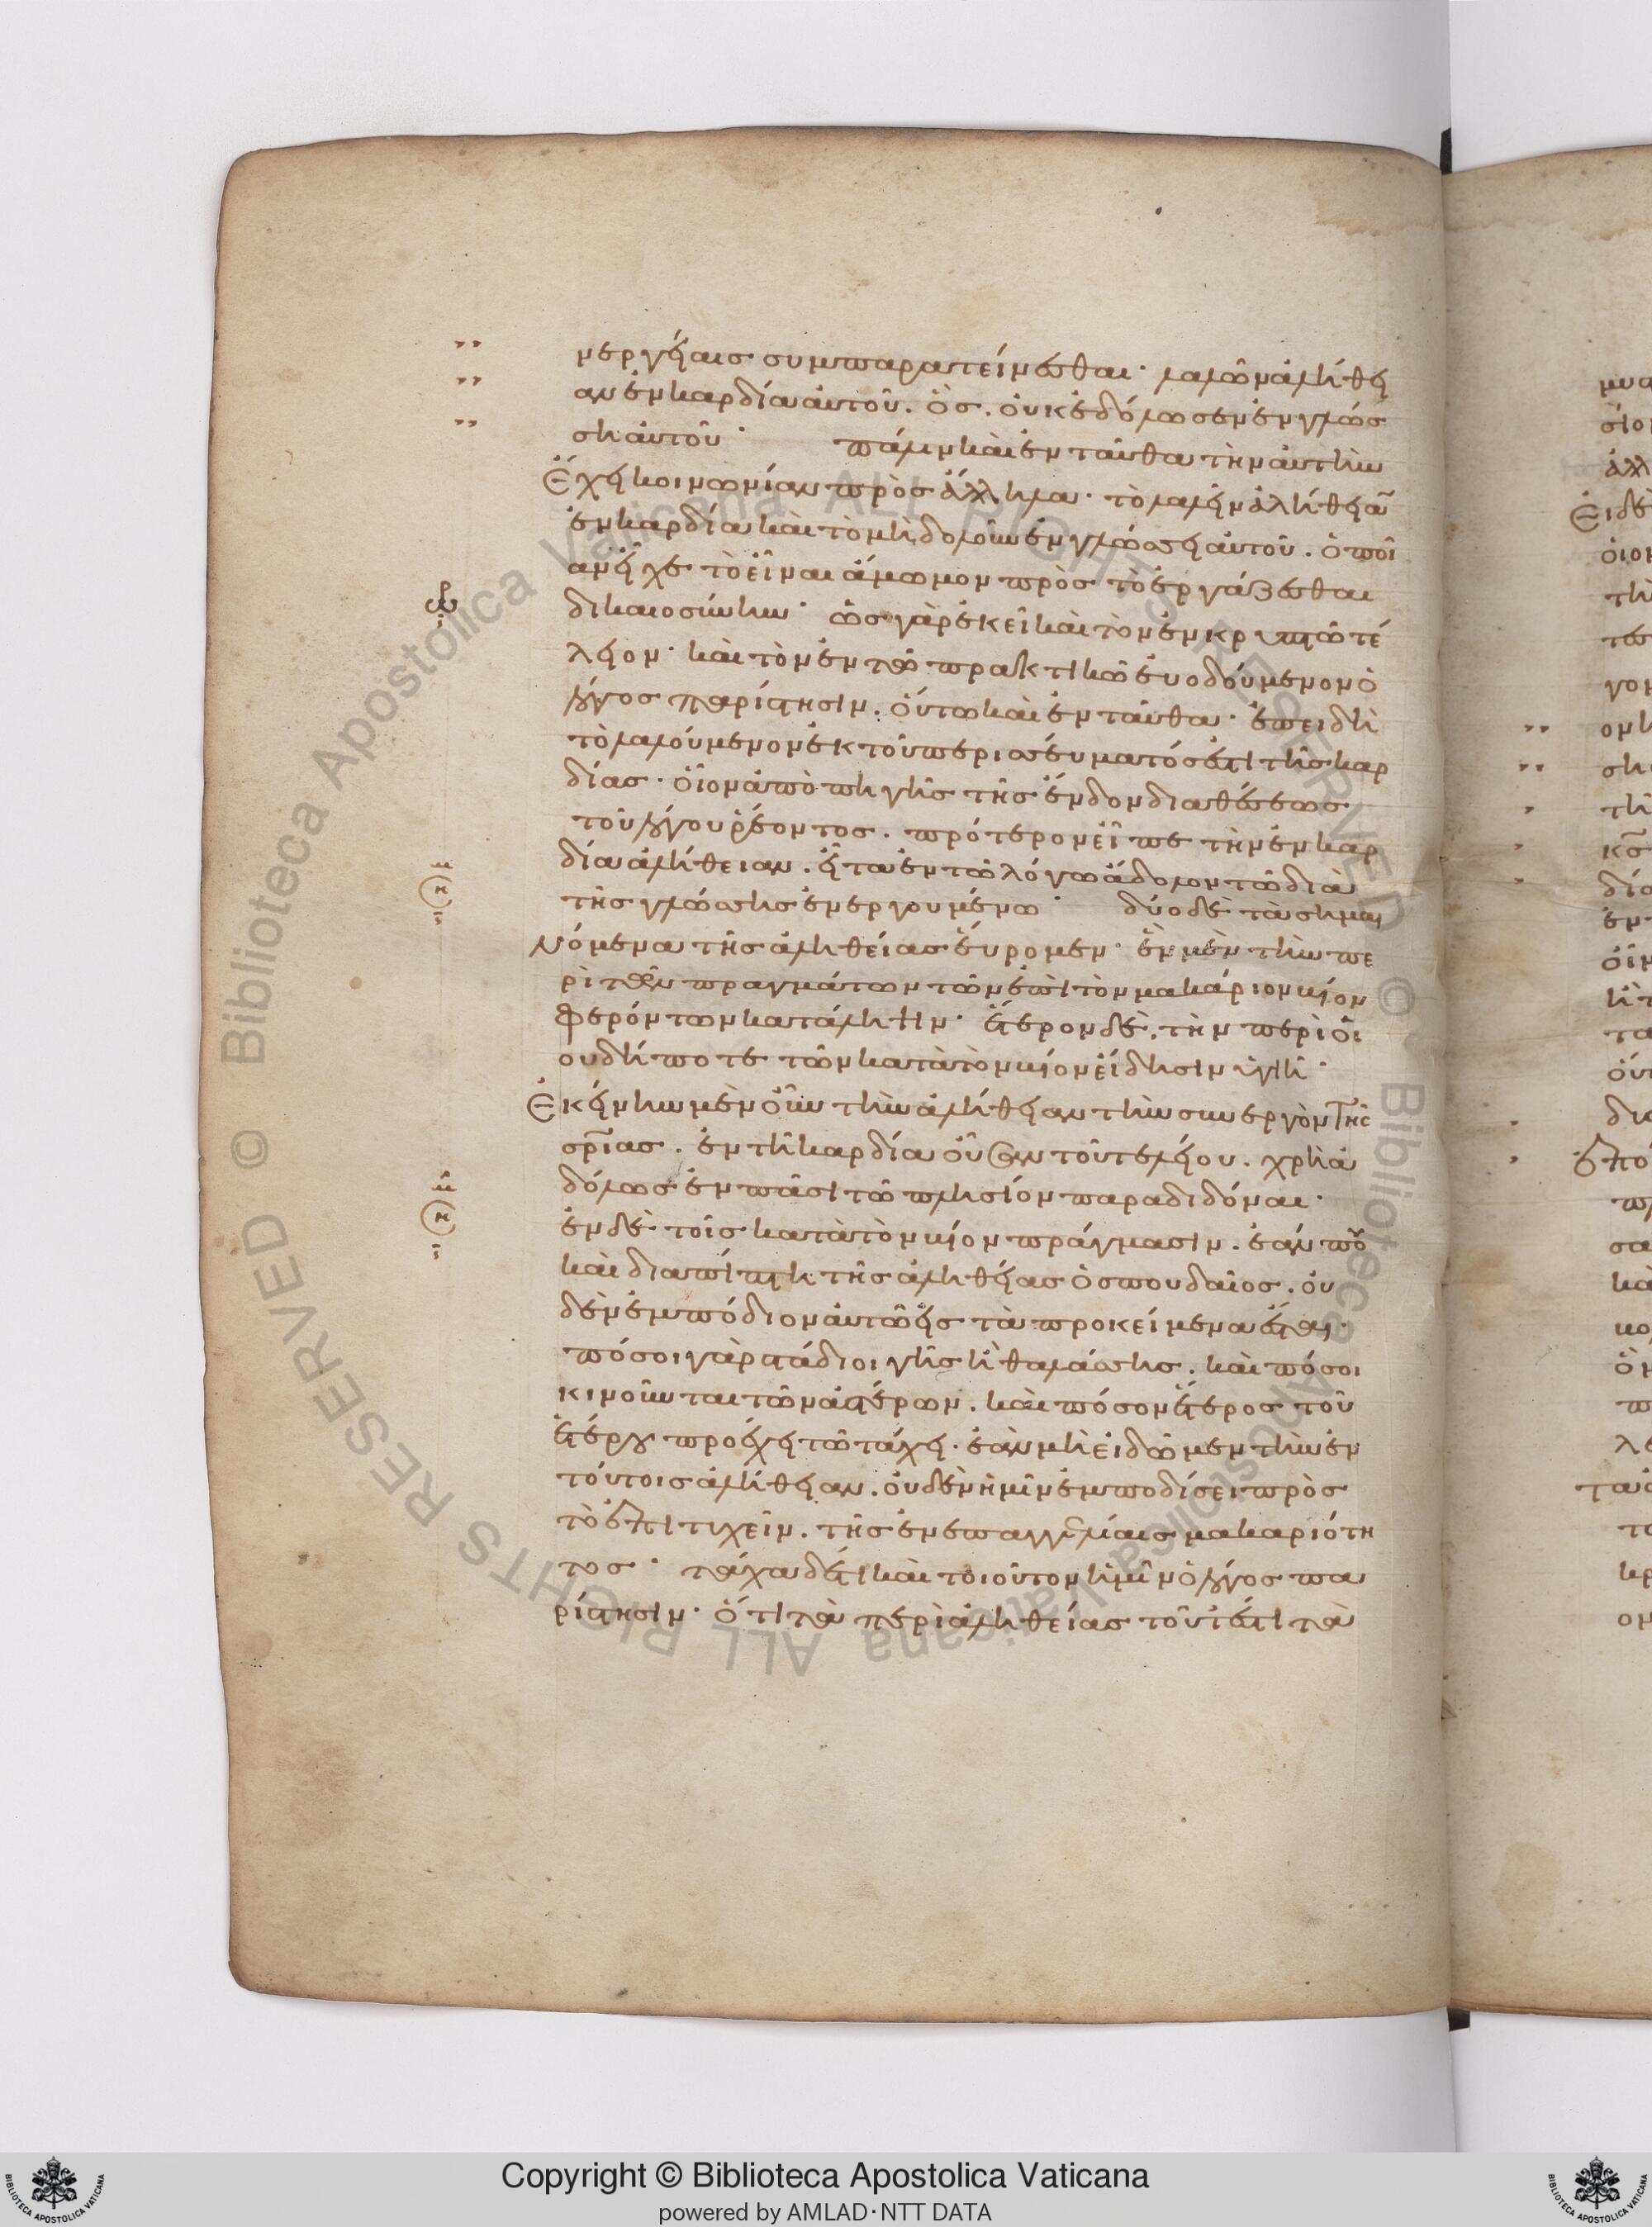 νεργείαις συμπαρατείνεσθαι· λαλῶν ἀλήθει
αν ἐν καρδία αὐτοῦ. ὃς. οὐκ ἐδόλωσεν ἐν γλώσ
ση αὐτοῦ· πάλιν καὶ ἐνταῦθα τὴν αὐτὴν
ἔχει κοινωνίαν πρὸς ἄλληλα· τὸ λαλεῖν ἀλήθειαν
ἐν καρδία καὶ τὸ μὴ δολοῦν ἐν γλώσσει αὐτοῦ. ὁποί
αν εἶχε τὸ εἶναι ἄμωμον πρὸς τὸ ἐργάζεσθαι
δικαιοσύνην· ὡς γὰρ ἐκεῖ καὶ τὸν ἐν κρυπτῶ τέ
λειον· καὶ τὸν ἐν τῶ πρακτικῶ εὐοδούμενον ὁ
λόγος παρίστησιν. οὕτω καὶ ἐνταῦθα· ἐπειδὴ
τὸ λαλούμενον ἐκ τοῦ περισσεύματός ἐστι τῆς καρ
δίας· οἷον ἀπὸ πηγῆς τῆς ἔνδον διαθέσεως
τοῦ λόγου ῥέοντος. πρότερον εἶπε τὴν ἐν καρ
δία ἀλήθειαν. εἶτα ἐν τῶ λόγω ἄδολον τῶ διὰ
τῆς γλώσσης ἐνεργουμένω· δύο δὲ τὰ σημαι
νόμενα τῆς ἀληθείας εὕρομεν· ἓν μὲν τὴν πε
ρὶ τῶν πραγμάτων τῶν ἐπὶ τὸν μακάριον βίον
φερόντων κατάληψιν· ἕτερον δὲ, τὴν περὶ οἱ
ουδήποτε τῶν κατὰ τὸν βίον εἴδησιν ὑγιῆ·
ἐκείνην μὲν οὖν τὴν ἀλήθειαν τὴν συνεργὸν τῆς
σρίας. ἐν τῆ καρδία οὖσαν τοῦ τελείου. χρὴ ἀ
δόλως ἐν πᾶσι τῶ πλησίον παραδιδόναι·
ἐν δὲ τοῖς κατὰ τὸν βίον πράγμασιν. ἐάν που
καὶ διαπίπτη τῆς ἀληθείας ὁ σπουδαῖος. οὐ
δὲν ἐμπόδιον αὐτῶ εἰς τὰ προκείμενα ἔσται·
πόσοι γὰρ στάδιοι γῆς ἢ θαλάσσης. καὶ πόσοι
κινοῦνται τῶν ἀστέρων. καὶ πόσον ἕτερος τοῦ
ἑτέρου προέχει τῶ τάχει· ἐὰν μὴ εἰδῶμεν τὴν ἐν
τούτοις ἀλήθειαν. οὐδὲν ἡμῖν ἐμποδίσει πρὸς
τὸ ἐπιτυχεῖν. τῆς ἐν ἐπαγγελίαις μακαριότη
τος· τάχα δέ τι καὶ τοιοῦτον ἡμῖν ὁ λόγος πα
ρίστησιν· ὅτι τὰ περὶ ἀληθείας τουτέστι τὰ
Copyright © Biblioteca Apostolica Vaticana
powered by AMLAD·NTT DATA